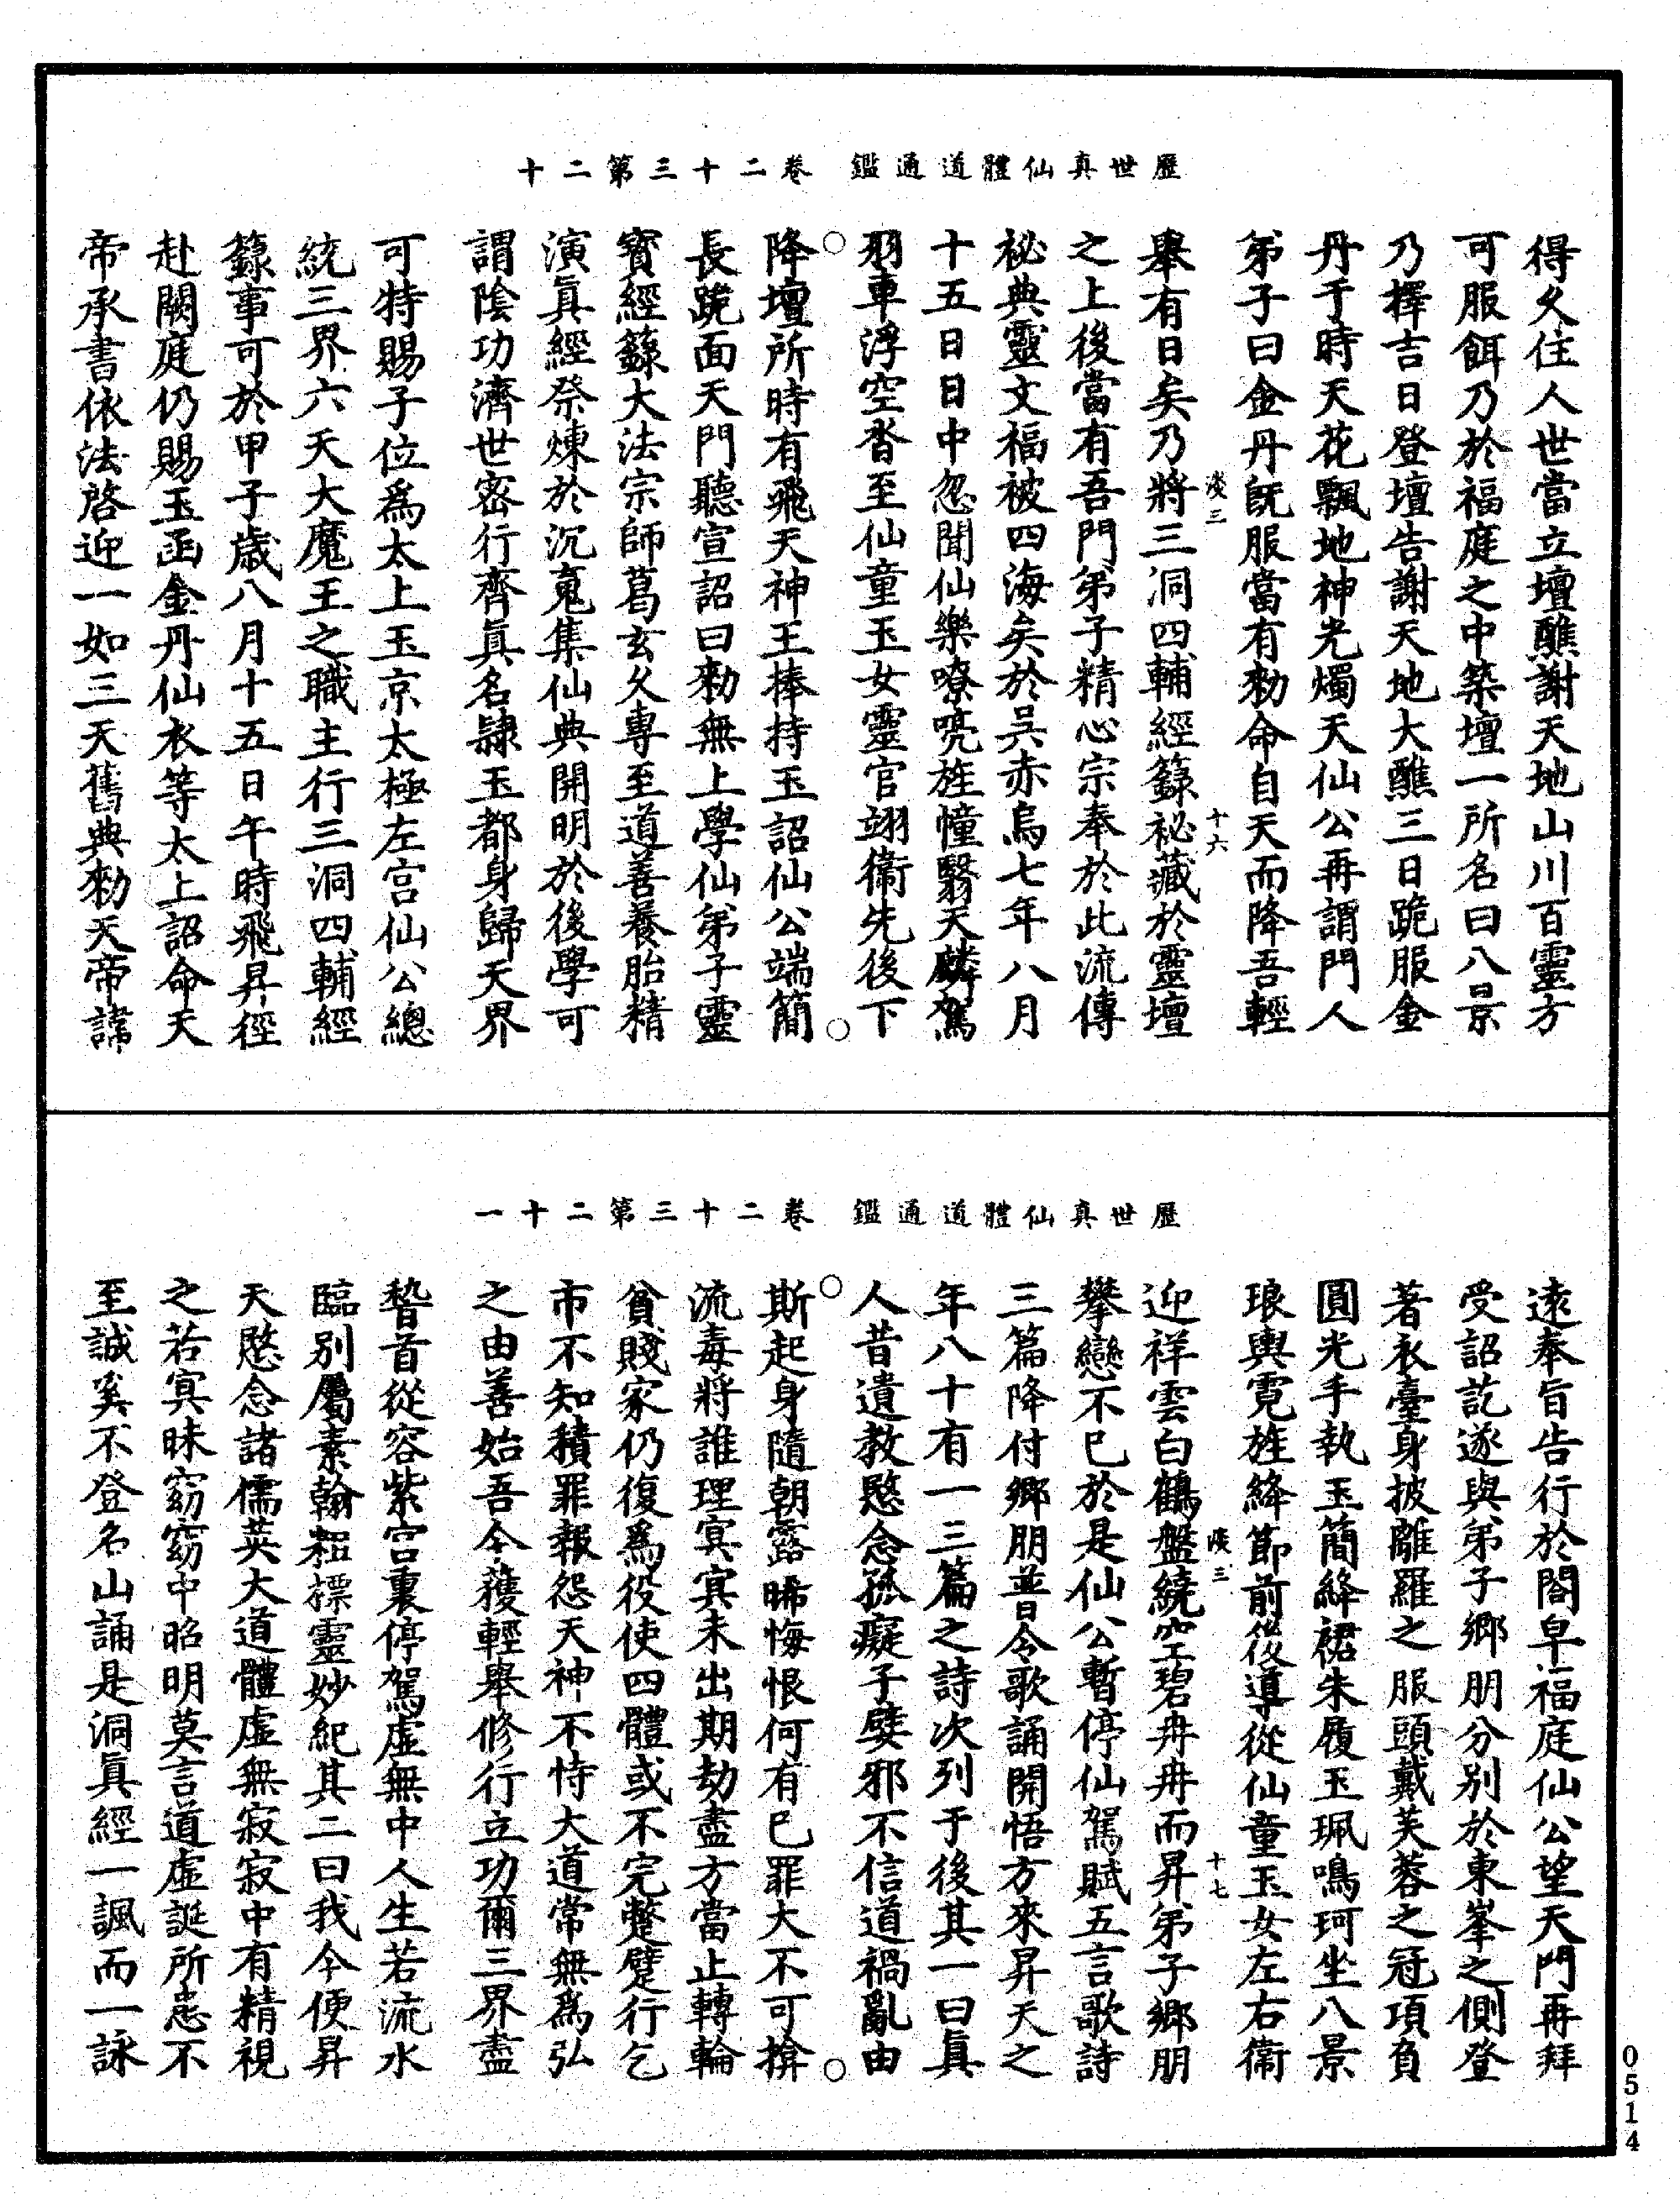 歷世真仙體道通鑑　卷二十三第二十
得久住人世當立壇醮謝天地山川百靈方
可服餌乃於福庭之中築壇一所名曰八景
乃擇吉日登壇告謝天地大醮三日跪服金
丹于時天花飄地神光燭天仙公再謂門人
弟子曰金丹旣服當有勑命自天而降吾輕
淡三　十六
舉有日矣乃將三洞四輔經籙祕藏於靈壇
之上後當有吾門弟子精心宗奉於此流傳
祕典靈文福被四海矣於吳赤烏七年八月
十五日日中忽聞仙樂嘹喨旌幢翳天麟駕
羽車浮空沓至仙童玉女靈官翊衞先後下
○　○
降壇所時有飛天神王捧持玉詔仙公端簡
長跪面天門聽宣詔曰勑無上學仙弟子靈
寳經籙大法宗師葛玄久專至道善養胎精
演眞經祭煉於沉䰟集仙典開明於後學可
謂陰功濟世密行齊眞名隷玉都身歸天界
可特賜子位爲太上玉京太極左宮仙公總
統三界六天大魔王之職主行三洞四輔經
籙事可於甲子歲八月十五日午時飛昇徑
赴闕庭仍賜玉函金丹仙衣等太上詔命天
帝承書依法啓迎一如三天舊典勑天帝諱
歷世真仙體道通鑑　卷二十三第二十一
遠奉旨告行於閤皁福庭仙公望天門再拜
受詔訖遂與弟子鄉朋分別於東峯之側登
著衣臺身披離羅之服頭戴芙蓉之冠項負
圓光手執玉簡絳裙朱履玉珮鳴珂坐八景
琅輿霓旌絳節前後導從仙童玉女左右衞
淡三　十七
迎祥雲白鶴盤繞空碧冉冉而昇弟子鄉朋
攀戀不已於是仙公暫停仙駕賦五言歌詩
三篇降付鄉朋普令歌誦開悟方來昇天之
年八十有一三篇之詩次列于後其一曰眞
人昔遺教愍念孤癡子嬖邪不信道禍亂由
○　○
斯起身隨朝露晞悔恨何有已罪大不可揜
流毒將誰理㝠㝠未出期劫盡方當止轉輪
貧賤家仍復爲役使四體或不完蹩躄行乞
市不知積罪報怨天神不恃大道常無爲弘
之由善始吾今獲輕舉修行立功爾三界盡
稽首從容紫宮裏停駕虛無中人生若流水
臨別屬素翰粗標靈妙紀其二曰我今便昇
天愍念諸儒英大道體虛無寂寂中有精視
之若㝠昧窈窈中昭明莫言道虛誕所患不
至誠奚不登名山誦是洞眞經一諷而一詠
0514